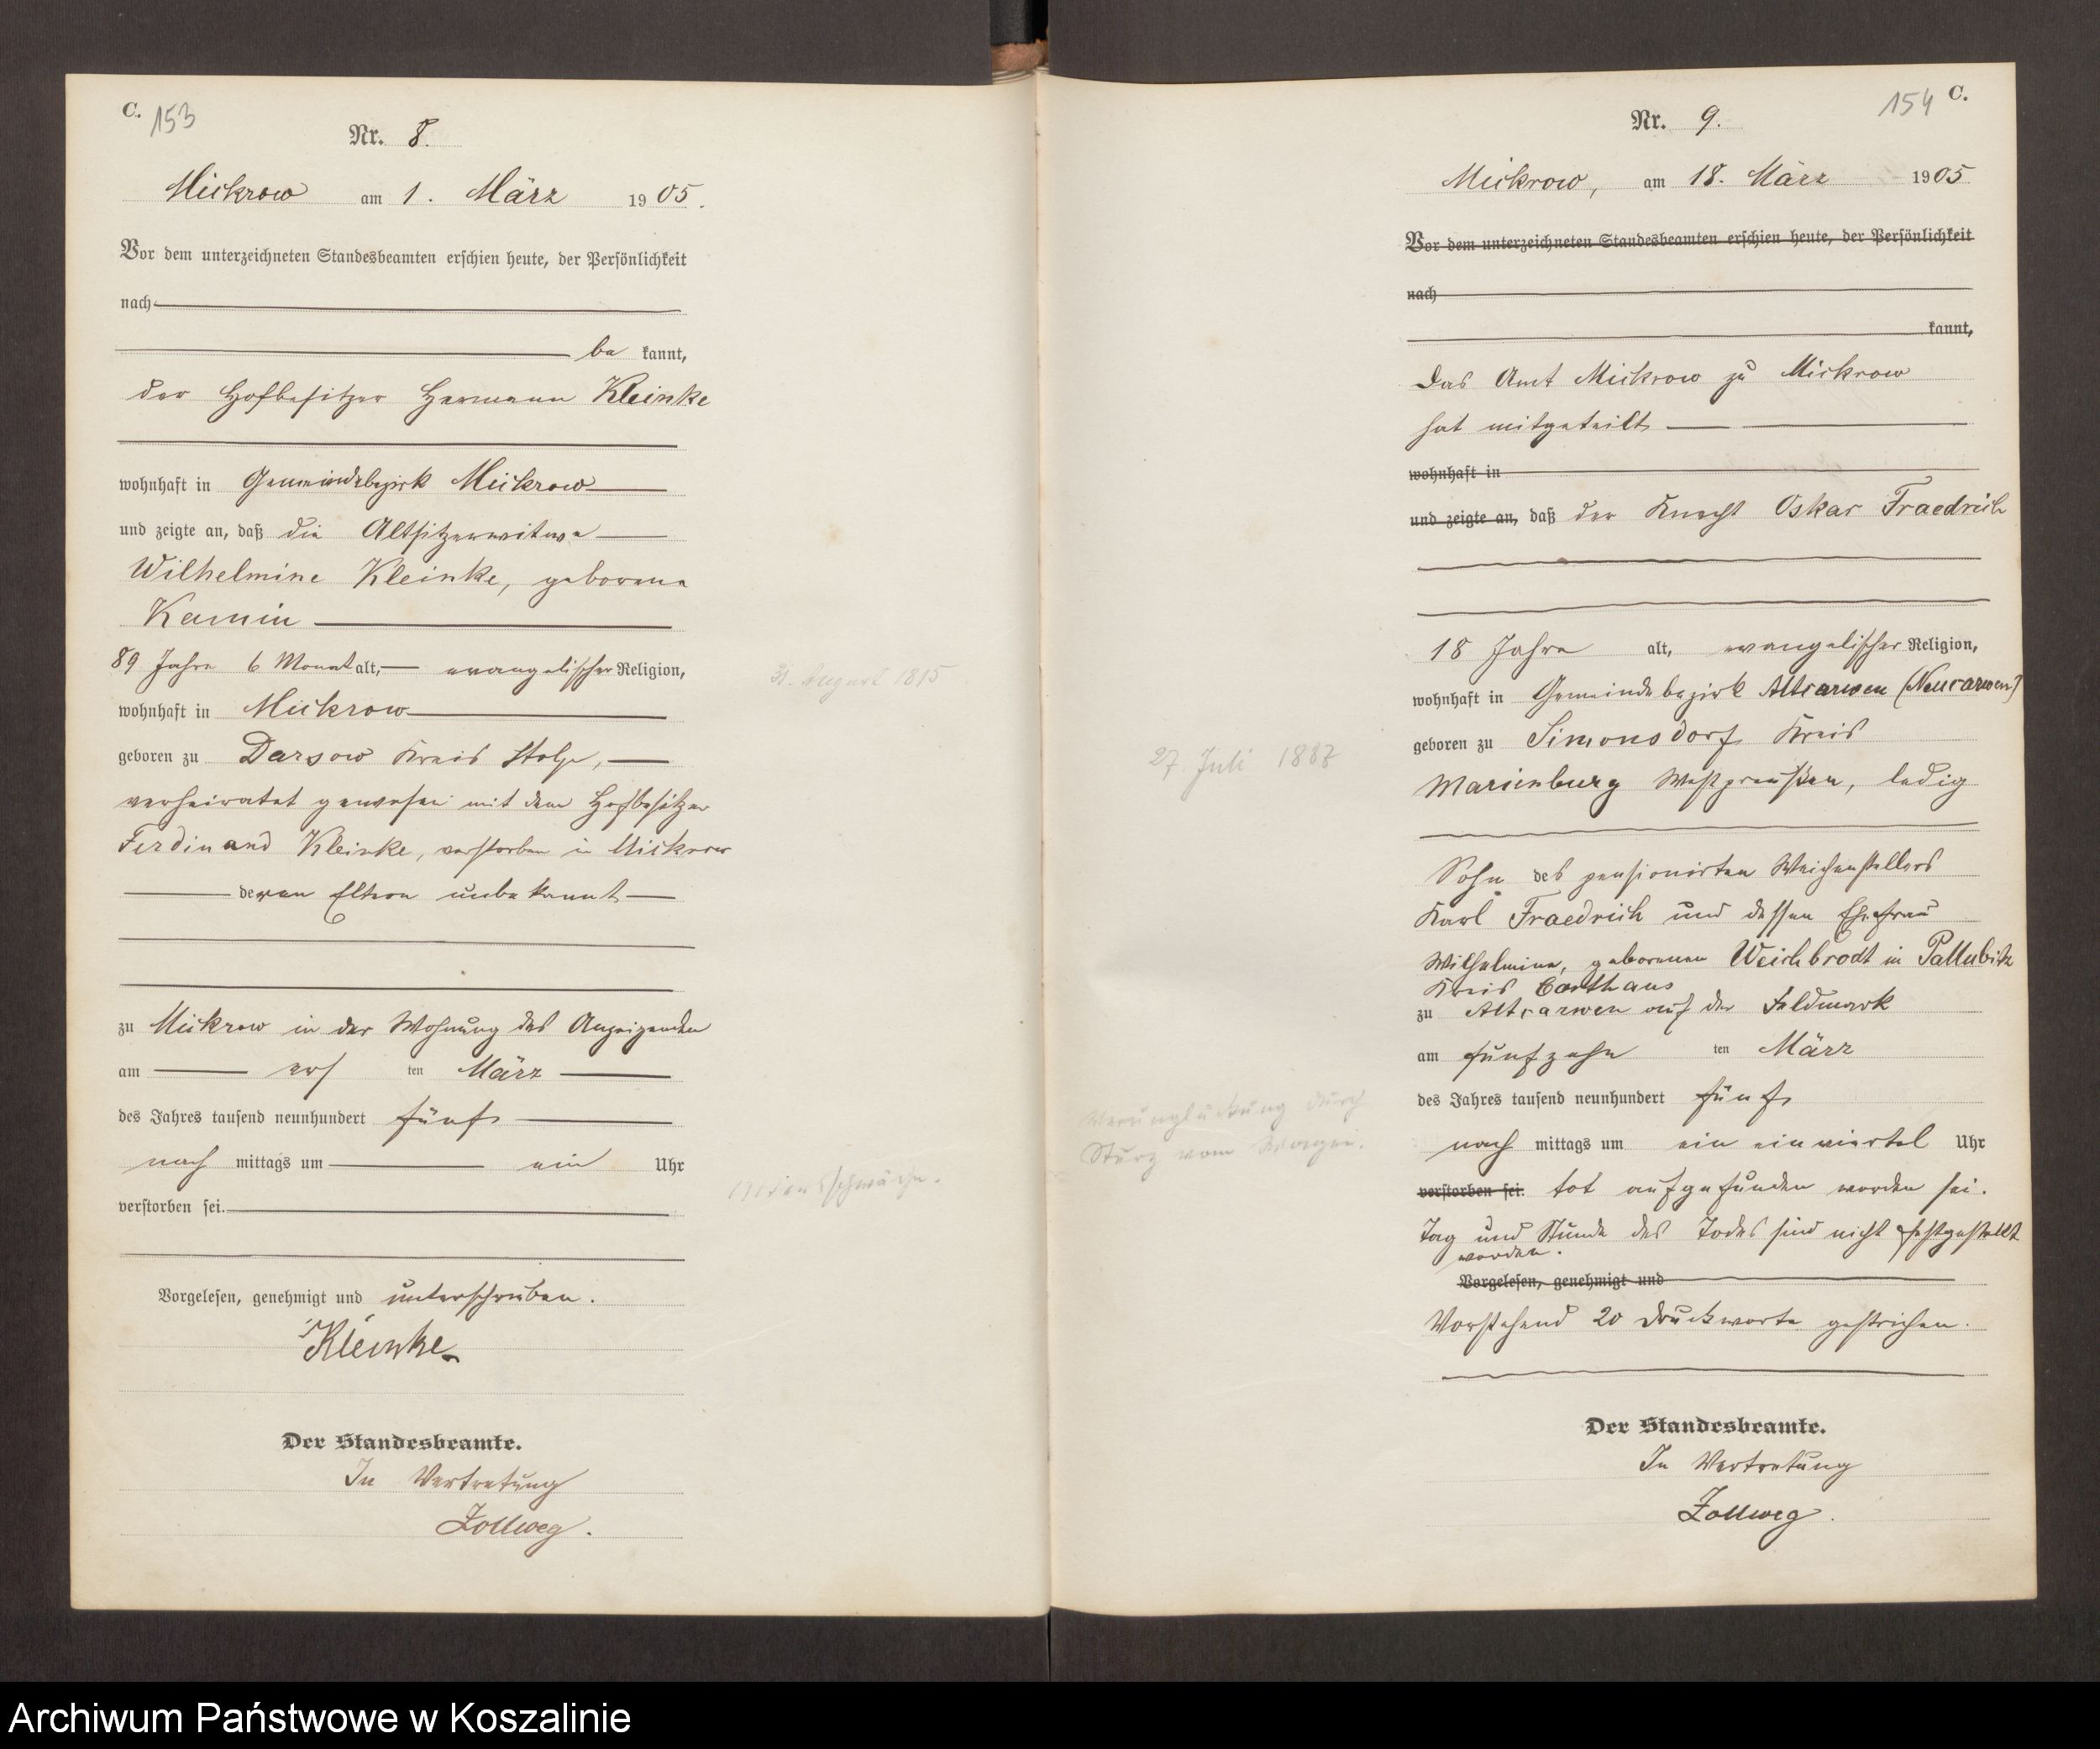 C. 153
Nr. 8.
Mickrow am 1. März 1905.
Vor dem unterzeichneten Standesbeamten erschien heute, der Persönlichkeit
nach
be kannt,
der Hofbesitzer Hermann Kleinke
wohnhaft in Gemeindebezirk Mickrow
und zeigte an, daß die Altsitzerwitwe
Wilhelmine Kleinke, geborene
Kamin
89 Jahre 6 Monat alt, evangelischer Religion,
31. August 1815
wohnhaft in Mickrow
geboren zu Darsow Kreis Stolp,
verheiratet gewesen mit dem Hofbesitzer
Ferdinand Kleinke, verstorben in Mickrow
deren Eltern unbekannt
zu Mickrow in der Wohnung des Anzeigenden
am ersten März
des Jahres tausend neunhundert fünf
nach mittags um ein Uhr
verstorben sei.
Vorgelesen, genehmigt und unterschrieben.
Kleinke
Der Standesbeamte.
In Vertretung
Zollweg.
154 C.
Nr. 9.
Mickrow, am 18. März 1905
Vor dem unterzeichneten Standesbeamten erschien heute, der Persönlichkeit
nach
kannt,
Das Amt Mickrow zu Mickrow
hat mitgeteilt
wohnhaft in
und zeigte an, daß der Knecht Oskar Fraedrich
18 Jahre alt, evangelischer Religion,
wohnhaft in Gemeindebezirk Altjarwen (Neujarwen)
geboren zu Simonsdorf Kreis
27. Juli 1887
Marienburg Westpreußen, ledig
Sohn des pensionirten Weichenstellers
Karl Fraedrich und dessen Ehefrau
Wilhelmine, geborenen Weichbrodt in Pallubitz
Kreis Carthaus
zu Altjarwen auf der Feldmark
am fünfzehn ten März
des Jahres tausend neunhundert fünf
Verunglückung durch
Sturz vom Wagen.
nach mittags um ein einviertel Uhr
verstorben sei. tot aufgefunden worden sei.
Tag und Stunde des Todes sind nicht festgestellt
worden.
Vorgelesen, genehmigt und
Vorstehend 20 Druckworte gestrichen.
Der Standesbeamte.
In Vertretung
Zollweg.
Archiwum Państwowe w Koszalinie